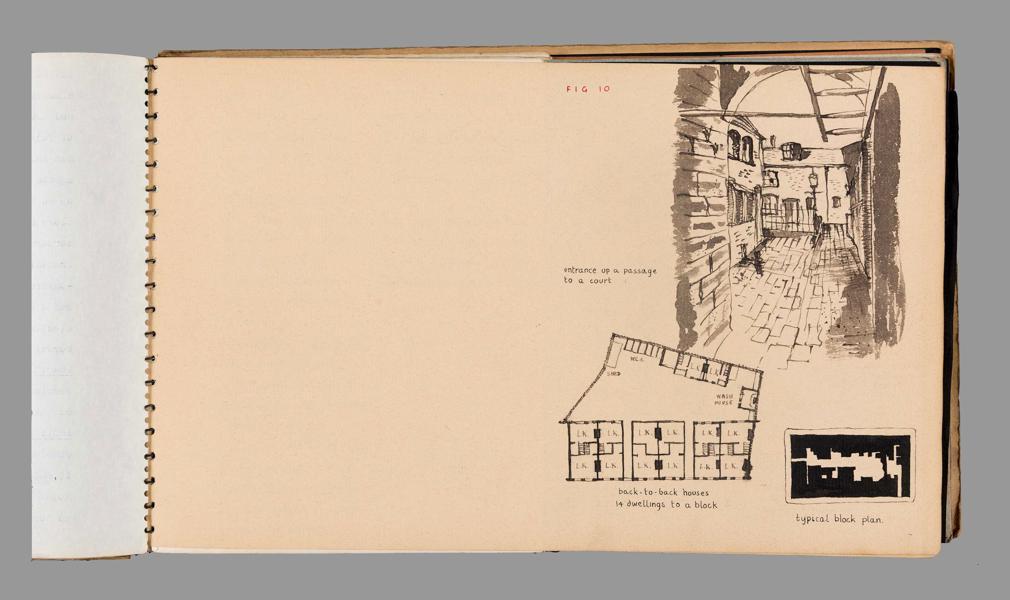 FIG 10
entrance up a passage
to a court
W.C.s
SHED
L.K.
L.K.
WASH
HOUSE
L.K. L.K. L.K. L.K. L.K. L.K.
L.K. L.K. L.K. L.K. L.K. L.K.
back-to-back houses
14 dwellings to a block
typical block plan.